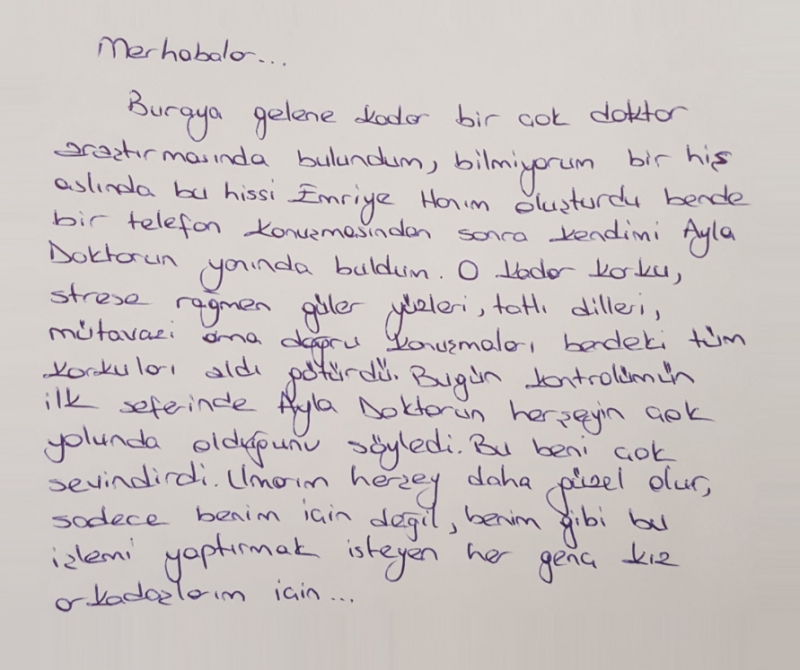 Merhabalar...
Buraya gelene kadar bir çok doktor
araştırmasında bulundum, bilmiyorum bir his
aslında bu hissi Emriye Hanım oluşturdu bende
bir telefon konuşmasından sonra kendimi Ayla
Doktorun yanında buldum. O kadar korku,
strese rağmen güler yüzleri, tatlı dilleri,
mütavazi ama doğru konuşmaları bendeki tüm
korkuları aldı götürdü. Bugün kontrolümün
ilk seferinde Ayla Doktorun herşeyin çok
yolunda olduğunu söyledi. Bu beni çok
sevindirdi. Umarım herşey daha güzel olur,
sadece benim için değil, benim gibi bu
işlemi yaptırmak isteyen her genç kız
arkadaşlarım için...